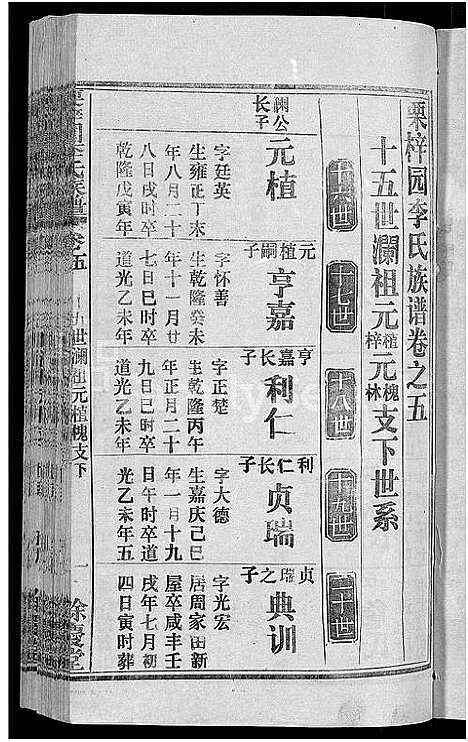 栗梓园李氏族谱卷之五
十五世澜祖元植梓元槐林支下世系
十六世
十七世
十八世
十九世
二十世
澜公长子
元植
字廷英
生雍正丁未
年八月二十
八日戌时卒
乾隆戊寅年
元植嗣子
亨嘉
字怀善
生乾隆癸未
年十一月廿
七日巳时卒
道光乙未年
亨嘉长子
利仁
字正楚
生乾隆丙午
年正月二十
日巳时卒
道光乙未年
利仁长子
贞瑞
字大德
生嘉庆己巳
年一月十九
日午时卒道
光乙未年五
贞瑞之子
典训
字光宏
居周家田新
屋卒咸丰壬
戌年七月初
四日寅时葬
李氏族谱
卷五
十五世澜祖元植槐支下
一
余庆堂